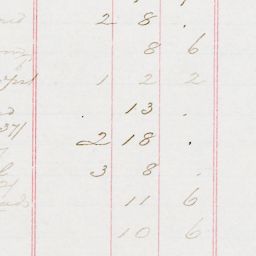 2 8 .
8 6
1 2 2
. 13 .
2 18 .
3 8 .
11 6
10 6